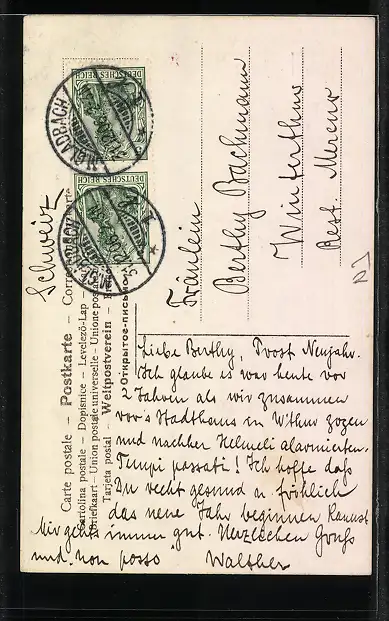 Carte postale – Postkarte – Corre
Cartolina postale – Dopisnice – Levelező-Lap –
Briefkaart – Union postale universelle – Unione pos
Tarjeta postal – Weltpostverein –
Открытое письмо
DEUTSCHES REICH
DEUTSCHES REICH
M.GLADBACH
M.GLADBACH
Fräulein
Berthy Bachmann
Winterthur
Rest. Mercur
Schweiz
Liebe Berthy, Prost Neujahr.
Ich glaube es war heute vor
2 Jahren als wir zusammen
vor's Stadthaus in W'thur zogen
und nachher Helmeli alarmierten.
Tempi passati! Ich hoffe daß
Du recht gesund u. fröhlich
das neue Jahr beginnen kannst
Mir geht's immer gut. Herzlichen Gruß
und non posso Walther